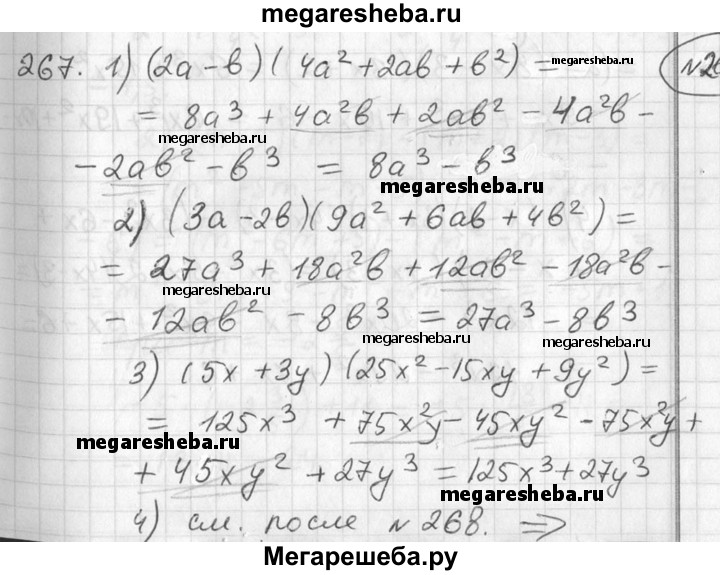 megaresheba.ru
267. 1) (2a - b)(4a² + 2ab + b²) = megaresheba.ru
= 8a³ + 4a²b + 2ab² - 4a²b -
megaresheba.ru
- 2ab² - b³ = 8a³ - b³
megaresheba.ru
2) (3a - 2b)(9a² + 6ab + 4b²) =
= 27a³ + 18a²b + 12ab² - 18a²b -
megaresheba.ru
- 12ab² - 8b³ = 27a³ - 8b³
megaresheba.ru
3) (5x + 3y)(25x² - 15xy + 9y²) =
= 125x³ + 75x²y - 45xy² - 75x²y +
megaresheba.ru
+ 45xy² + 27y³ = 125x³ + 27y³
megaresheba.ru
4) см. после №268. ⇒
Мегарешеба.ру